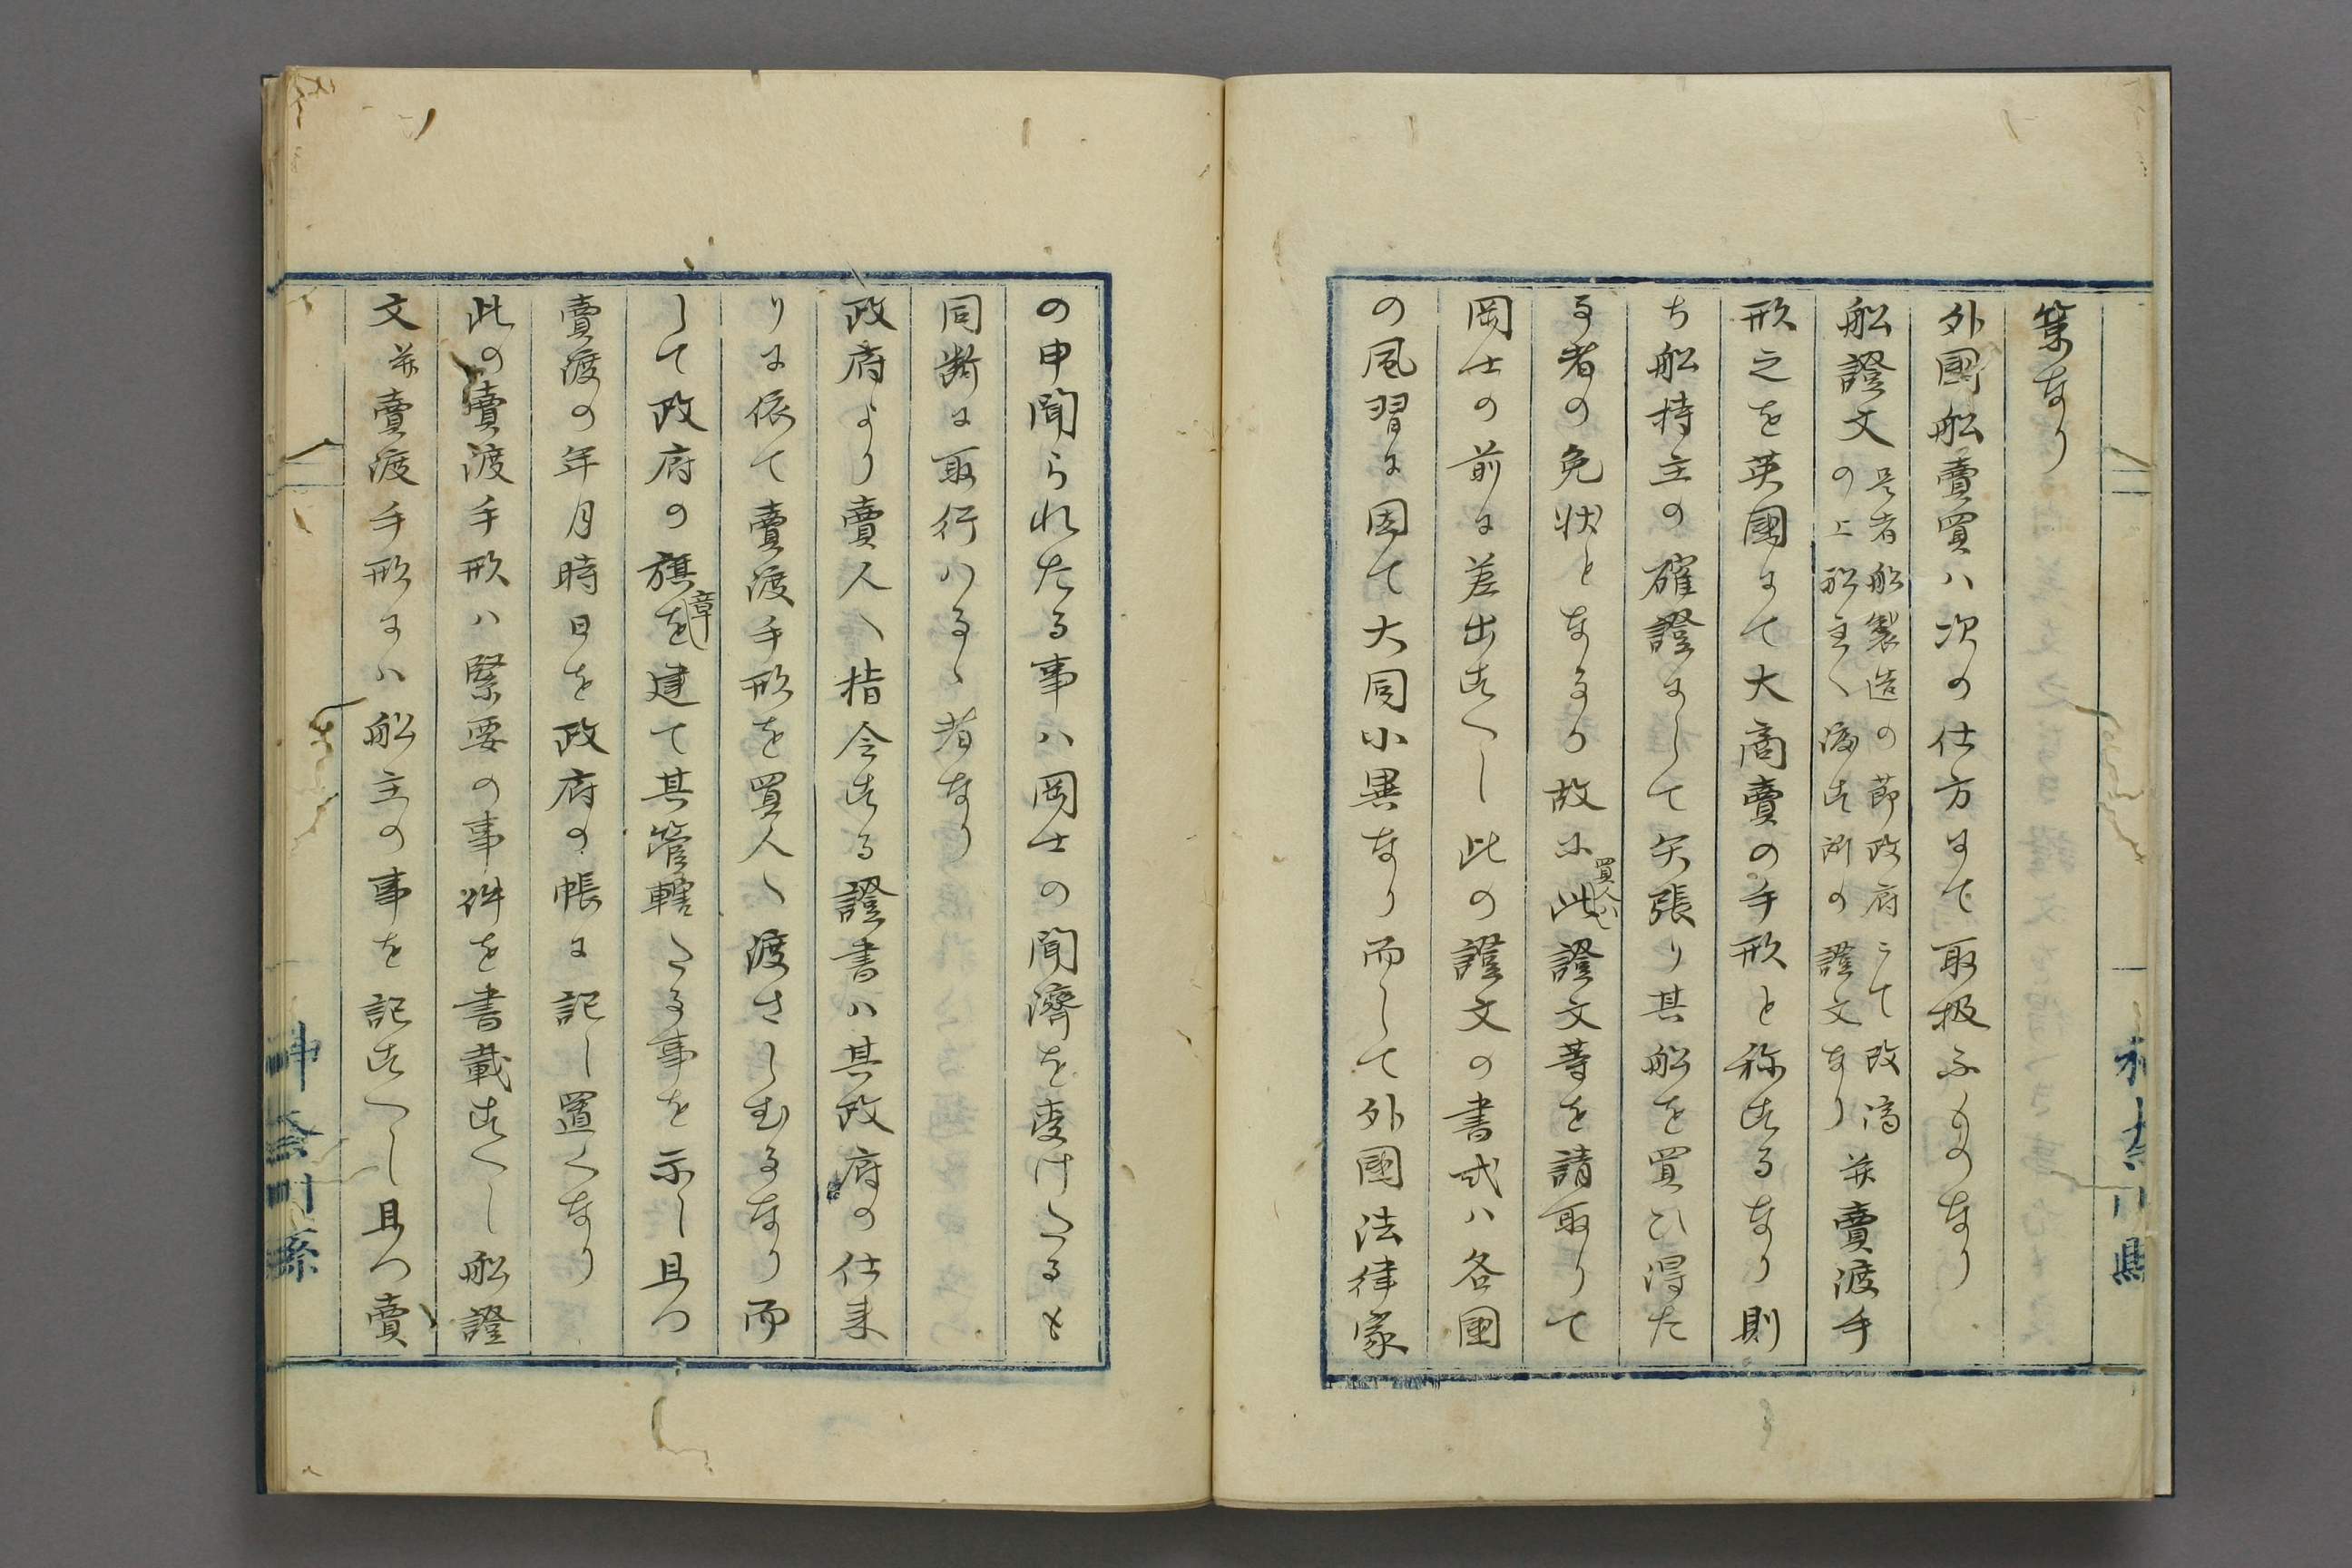 業なり
外國舩賣買ハ次の仕方にて取扱ふものなり
舩證文
是者舩製造の節政府にて改済
の上舩主へ渡す所の證文なり
并賣渡手
形之を英國にて大商賣の手形と称するなり則
ち舩持主の確證にして矢張り其舩を買ひ得た
る者の免状となるなり故に此證文等を請取りて
買人ハ
岡士の前に差出すへし此の證文の書式ハ各國
の風習に因て大同小異なり而して外國法律家
の申聞られたる事ハ岡士の聞濟を受けたるも
同断に取行ハるゝ者なり
政府より賣人へ指令する證書ハ其政府の仕来
りに依て賣渡手形を買人へ渡さしむるなり而
して政府の旗を建て其管轄たる事を示し且つ
章
賣渡の年月時日を政府の帳に記し置くなり
此の賣渡手形ハ緊要の事件を書載すへし舩證
文并賣渡手形にハ舩主の事を記すへし且つ賣
神奈川縣
神奈川縣